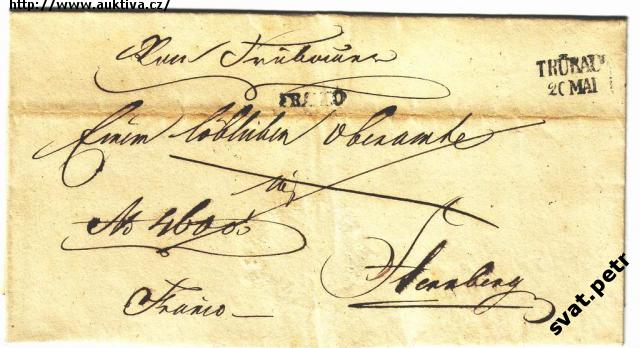 http://www.auktiva.cz/
Von Trübau
TRÜBAU
20 MAI
FRANCO
Einem löblichen Oberamte
in
No 4600
Sternberg
Franco
svat.petr